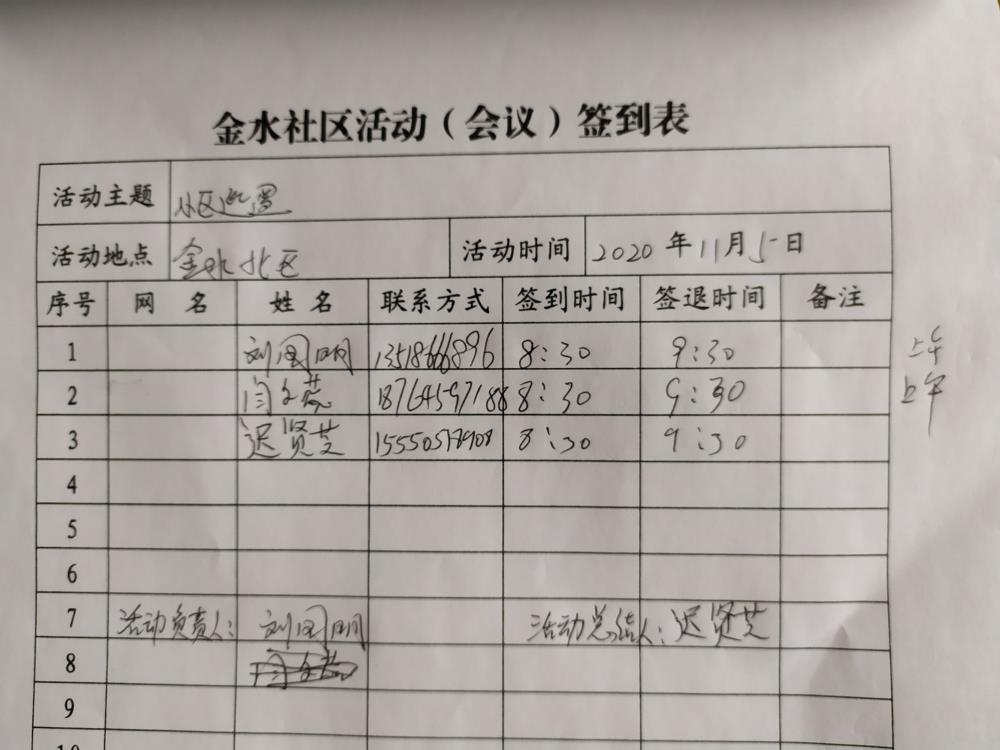 金水社区活动（会议）签到表
活动主题 小区巡逻
活动地点 金水北区 活动时间 2020年11月5日
序号 网名 姓名 联系方式 签到时间 签退时间 备注
1 刘国明 13518666896 8:30 9:30 上午
2 闫文蕊 18764597188 8:30 9:30 上午
3 迟贤芝 8:30 9:30
4
5
6
7 活动负责人: 刘国明 活动总结人: 迟贤芝
8
9
10